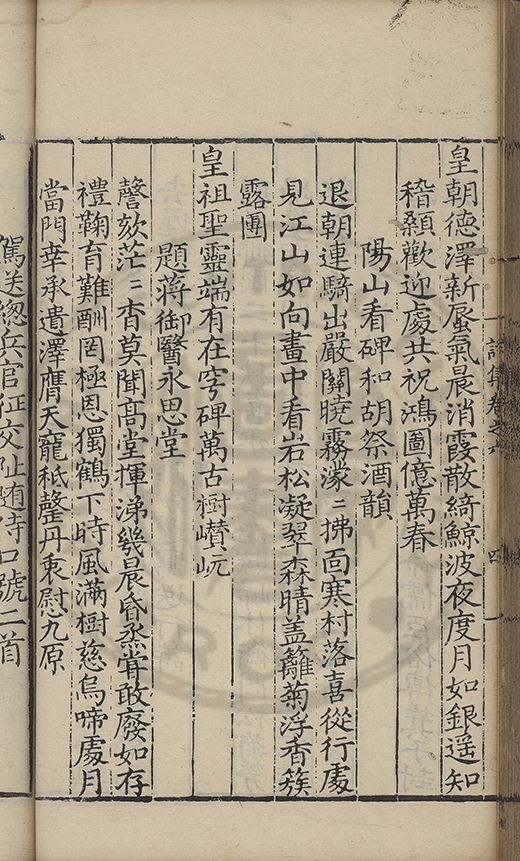 皇朝德澤新蜃氣晨消霞散綺鯨波夜度月如銀遥知
稽顙歡迎處共祝鴻圖億萬春
陽山看碑和胡祭酒韻
退朝連騎出嚴關曉霧濛〻拂面寒村落喜從行處
見江山如向畫中看岩松凝翠森晴盖籬菊浮香簇
露團
皇祖聖靈端有在穹碑萬古樹巑岏
題蔣御醫永思堂
謦欬茫〻杳莫聞高堂揮涕幾晨昏烝甞敢廢如存
禮鞠育難酬罔極恩獨鶴下時風滿樹慈烏啼處月
當門幸承遺澤膺天寵秪罄丹衷慰九原
駕送總兵官征交阯随侍口號二首
詩集卷之六
四